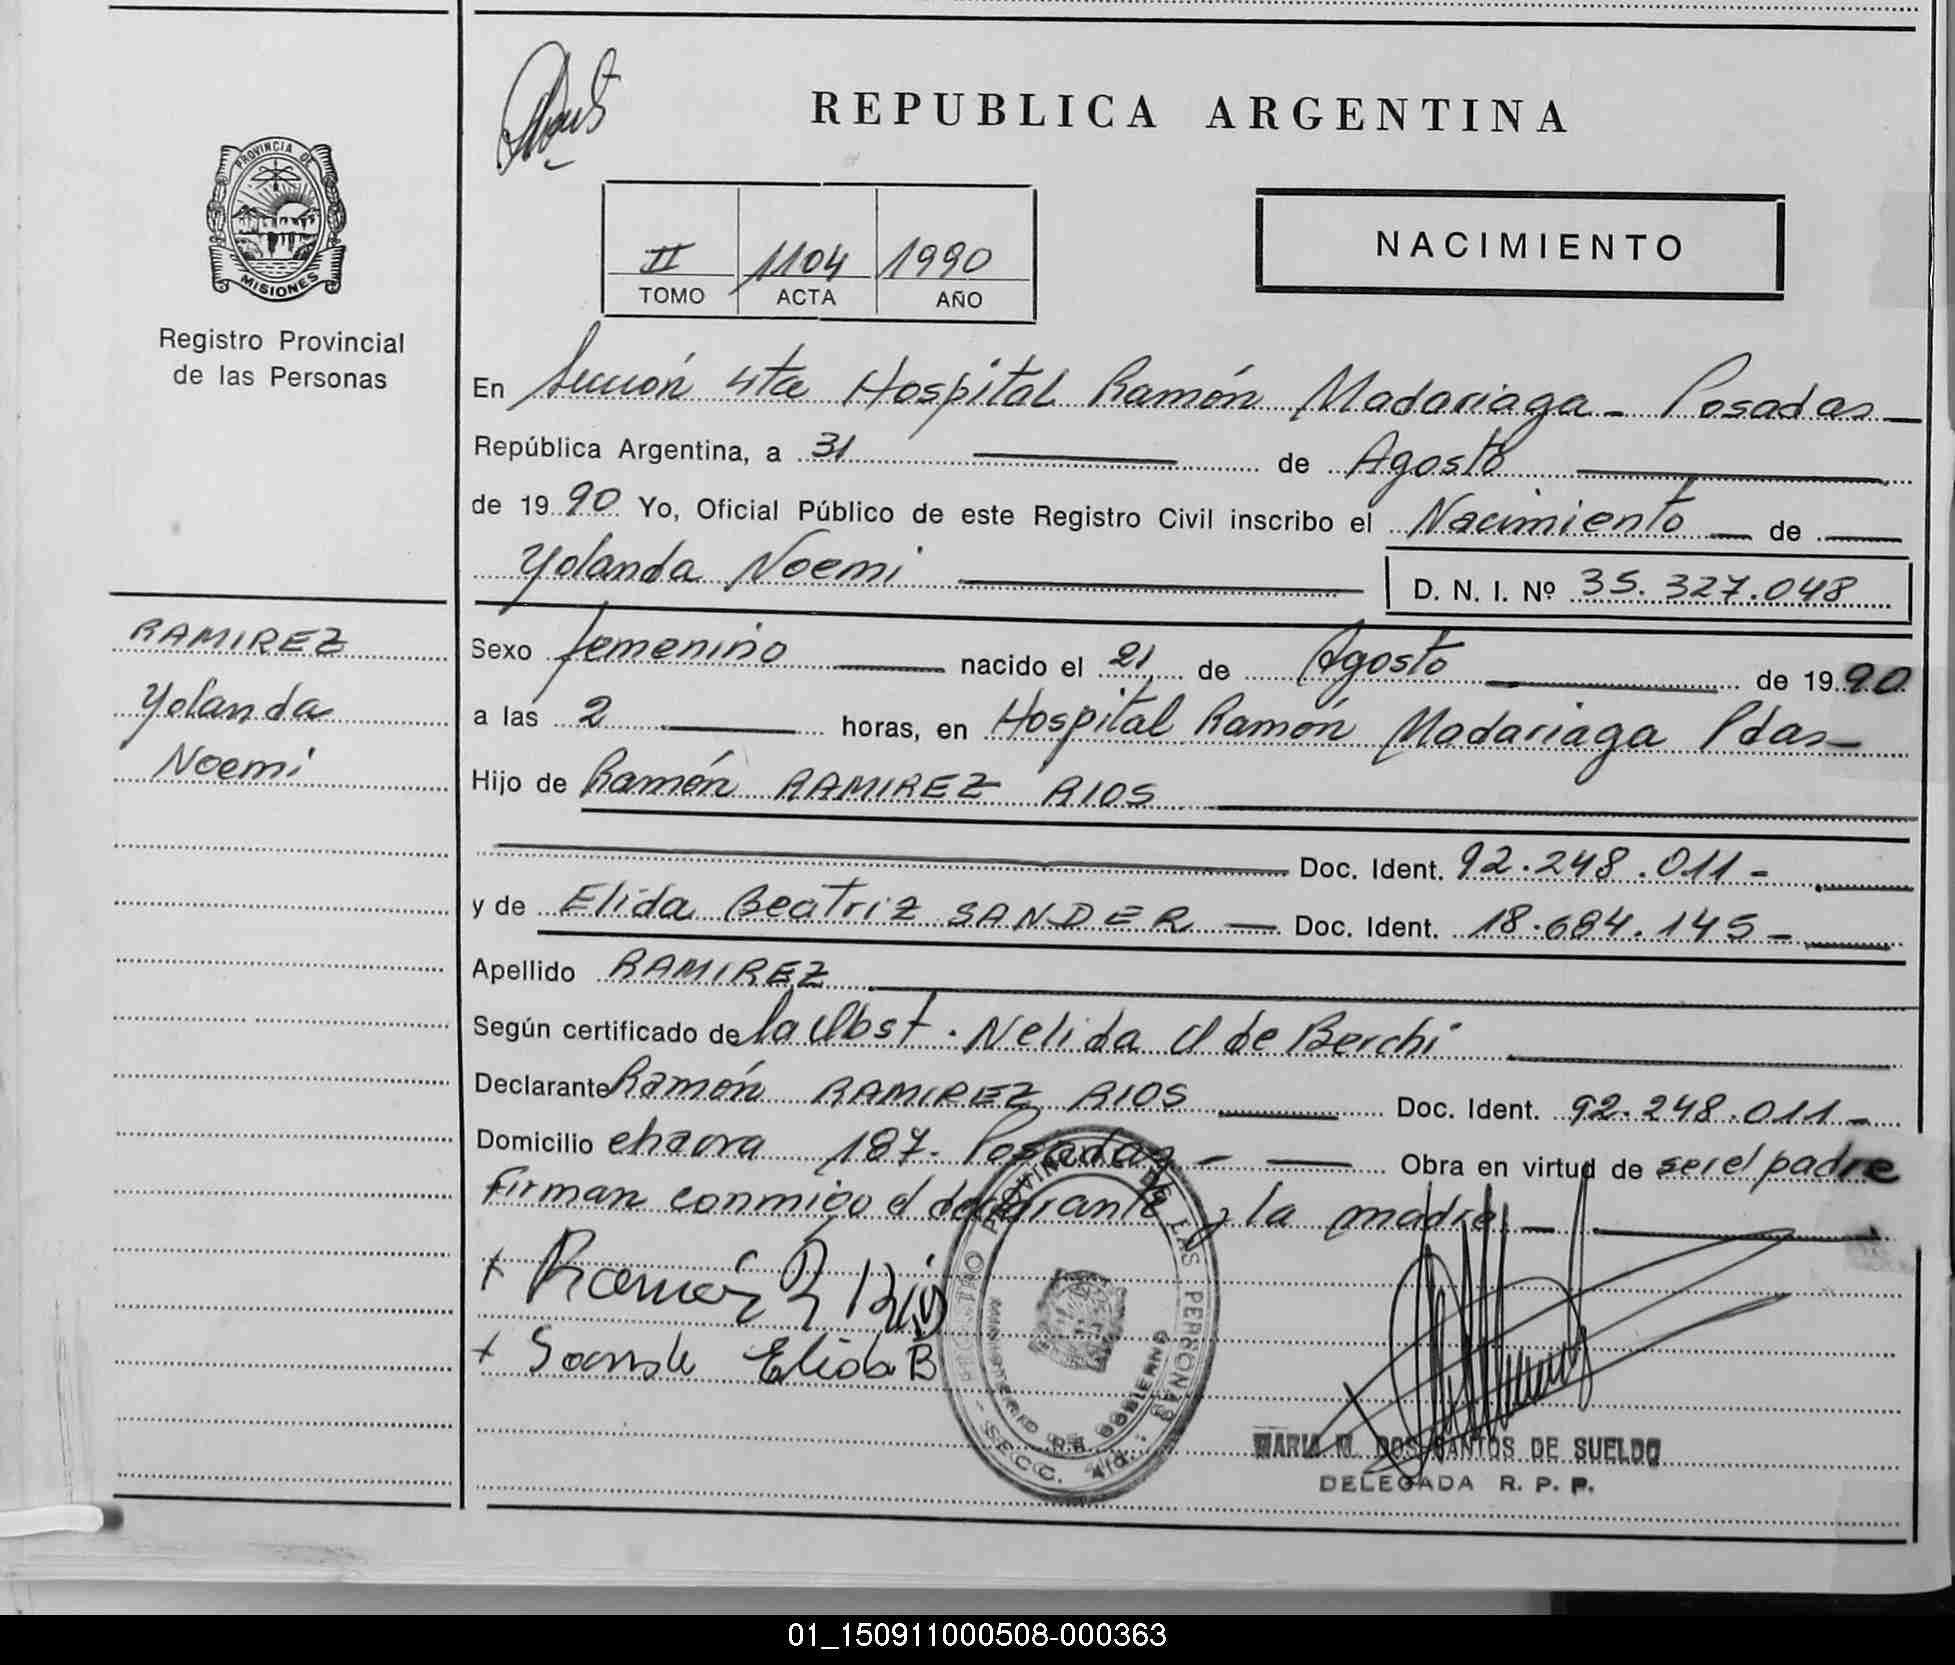 REPUBLICA ARGENTINA
PROVINCIA DE
MISIONES
Registro Provincial
de las Personas
II 1104 1990
TOMO ACTA AÑO
NACIMIENTO
En Sección 4ta Hospital Ramón Madariaga - Posadas
República Argentina, a 31 de Agosto
de 1990 Yo, Oficial Público de este Registro Civil inscribo el Nacimiento de
Yolanda Noemi
D. N. I. Nº 35.327.048
RAMIREZ
Yolanda
Noemi
Sexo femenino nacido el 21 de Agosto de 1990
a las 2 horas, en Hospital Ramón Madariaga Pdas
Hijo de Ramón RAMIREZ RIOS
Doc. Ident. 92.248.011-
y de Elida Beatriz SANDER Doc. Ident. 18.684.145-
Apellido RAMIREZ
Según certificado de la Obst. Nelida A de Berchi
Declarante Ramón RAMIREZ RIOS Doc. Ident. 92.248.011-
Domicilio chacra 187- Posadas - Obra en virtud de ser el padre
Firman conmigo el declarante y la madre
+ Ramón R Rios
+ Sander Elida B
REGISTRO PROVINCIAL DE LAS PERSONAS
MINISTERIO DE GOBIERNO
R.A.
SECC. 4ta.
MARIA M. DOS SANTOS DE SUELDO
DELEGADA R. P. P.
01_150911000508-000363